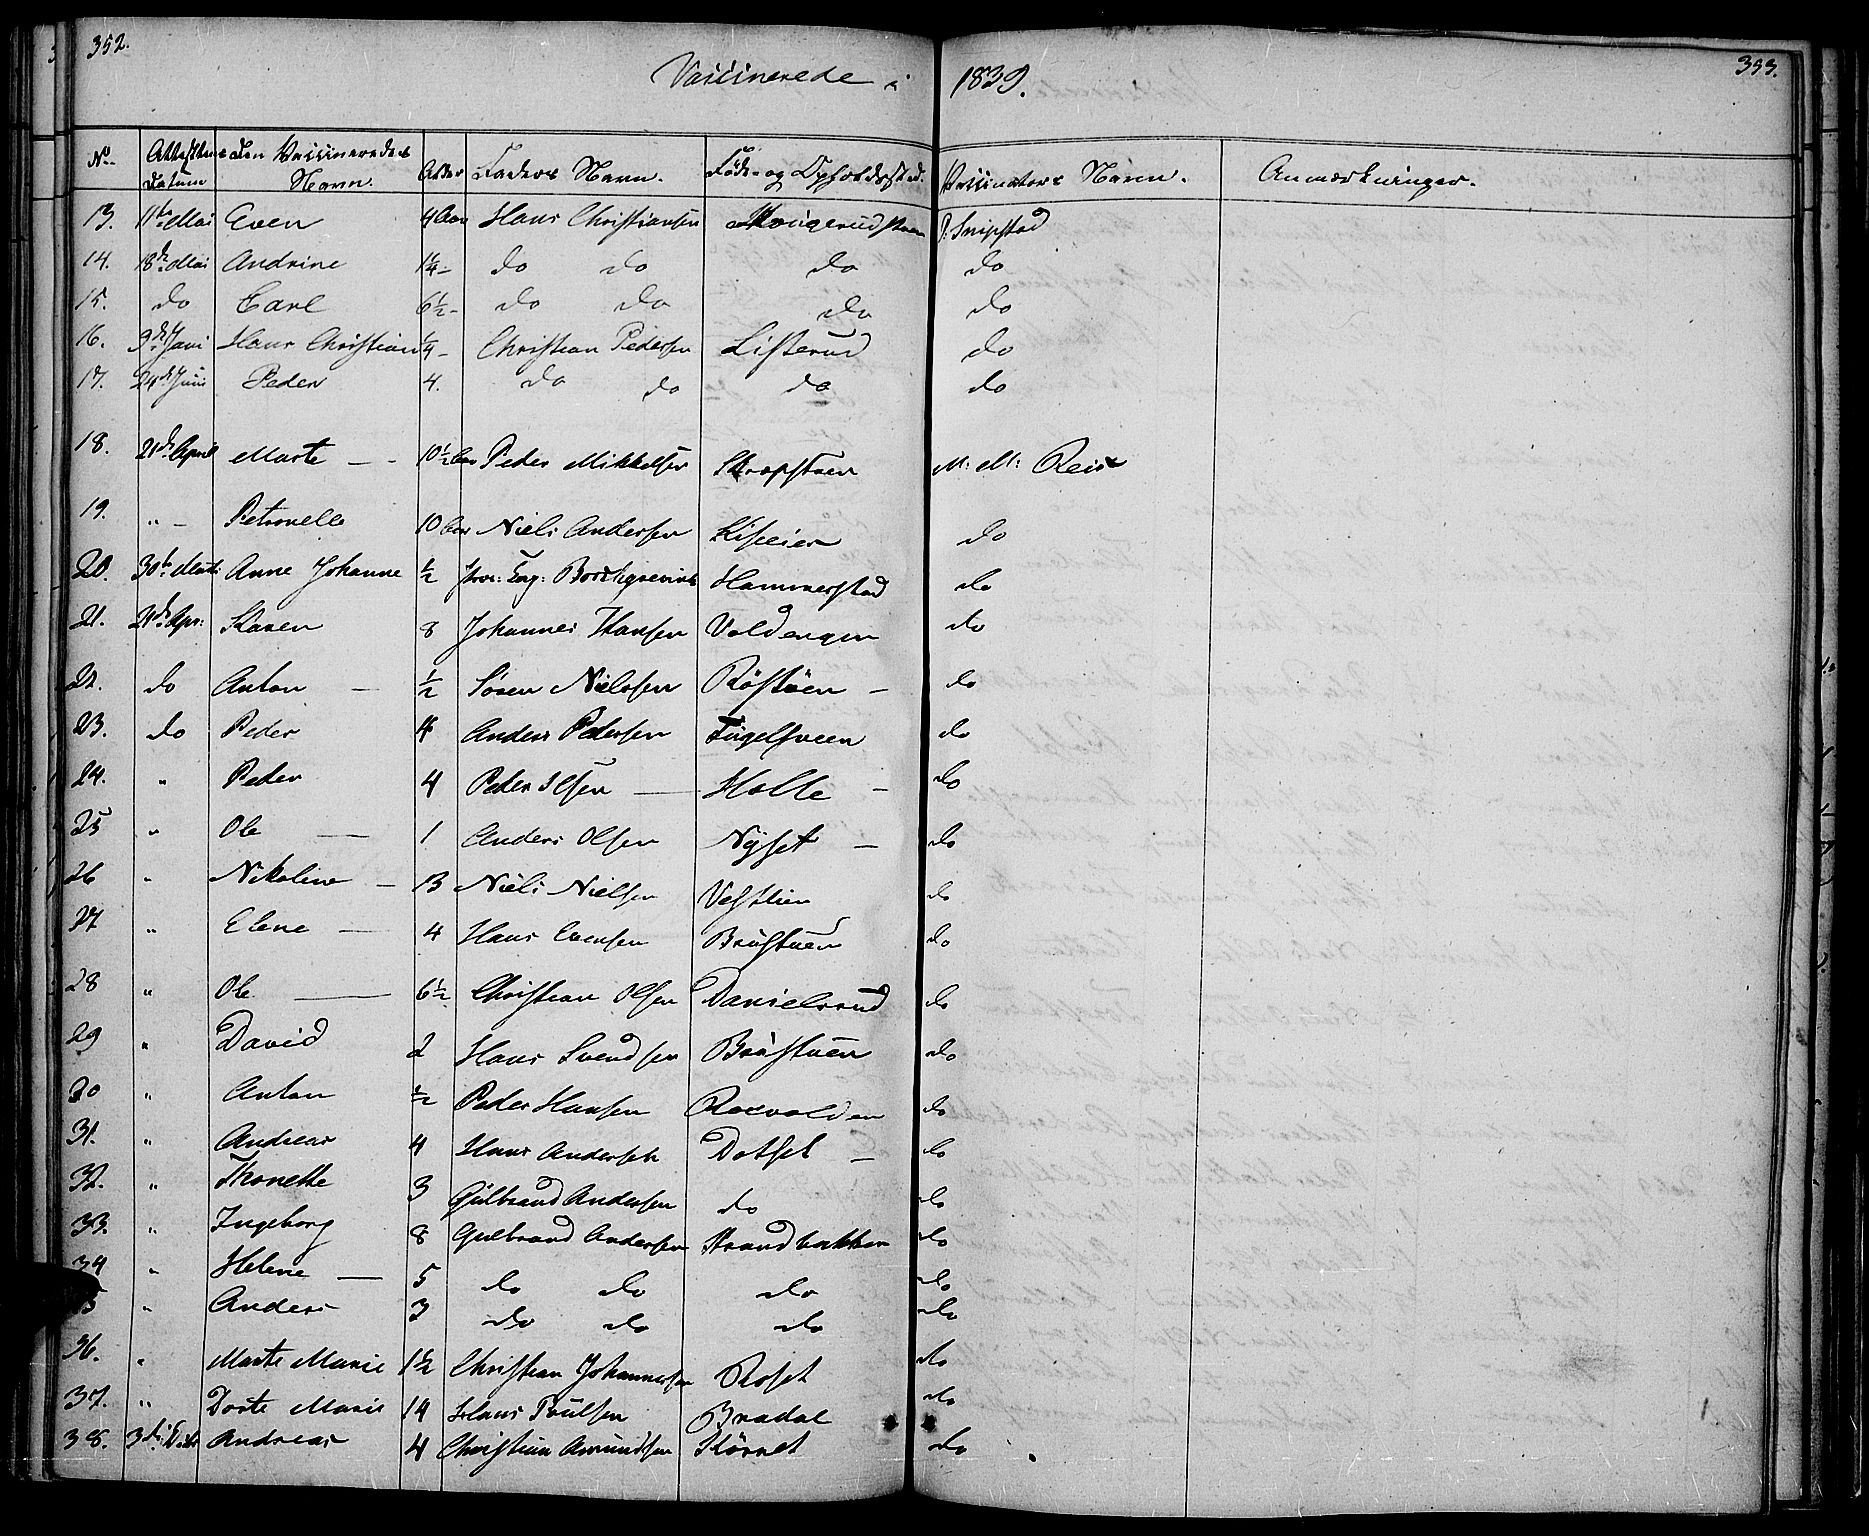 352.
353.
Vaccinerede i 1839.
No Attestens Datum Den Vaccineredes Navn. Alder Faders Navn. Føde- og Opholdssted. Vaccinators Navn. Anmærkninger.
13. 11te Mai Even 9 Aar Hans Christiansen P: Snipstad
14. 18de Mai Andrine 1¼ - do do do do
15. do Carl 6½ - do do do do
16. 3de Juni Hans Christian ¼ - Christian Pedersen Listerud do
17. 24de Juni Peder 4. do do do do
18. 21de April Marte - - 10½ Aar Peder Mikkelsen Skropstuen M: M: Reis
19. " - Petronelle 10 Aar Niels Andersen Liseier do
20. 30te Anne Johanne ½ Borchgrevink Hammerstad do
21. 21de Apr: Karen 8 Johannes Hansen Voldengen do
22. do Anton - ½ Søren Nielssen Röstöen - do
23. do Peder 4 Anders Pedersen Fugelsveen do
24. " Peder 4 Peder Olsen - Holle - do
25 " Ole - 1 Anders Olsen Nÿset - do
26 " Nikoline - 13 Niels Nielsen Vestlien do
27 " Elene - 4 Hans Evensen Bråstuen do
28 " Ole - 6½ Christian Olsen Danielsrud do
29 " David 2 Hans Svendsen Bråstuen do
30 " Anton ½ Peder Hansen Roevolden do
31. " Andreas 4 Hans Andersen Dotset - do
32. " Thonette 3 Gulbrand Andersen do do
33. " Ingeborg 8 Gulbrand Andersen Strandbakken do
34 " Helene - 5 do do do do
35 " Anders 3 do do do do
36. " Marte Marie 1½ Christian Johannesen Roset do
37. " Dorte Marie 14 Hans Poulsen Bradal do
38. Andreas 4 Christian Amundsen do